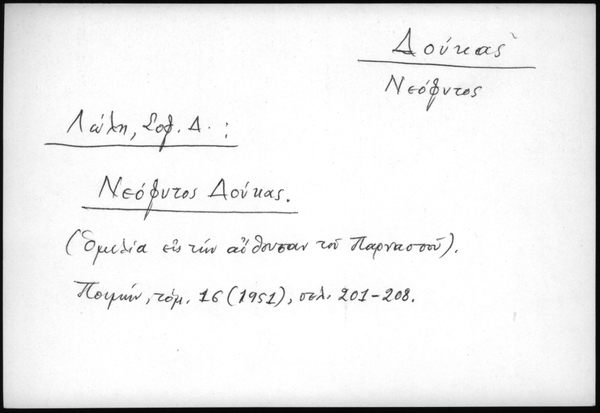 Δούκας
Νεόφυτος
Λώλη, Σοφ. Δ. :
Νεόφυτος Δούκας.
(Ὁμιλία εἰς τὴν αἴθουσαν τοῦ Παρνασσοῦ).
Ποιμήν, τόμ. 16 (1951), σελ. 201-208.